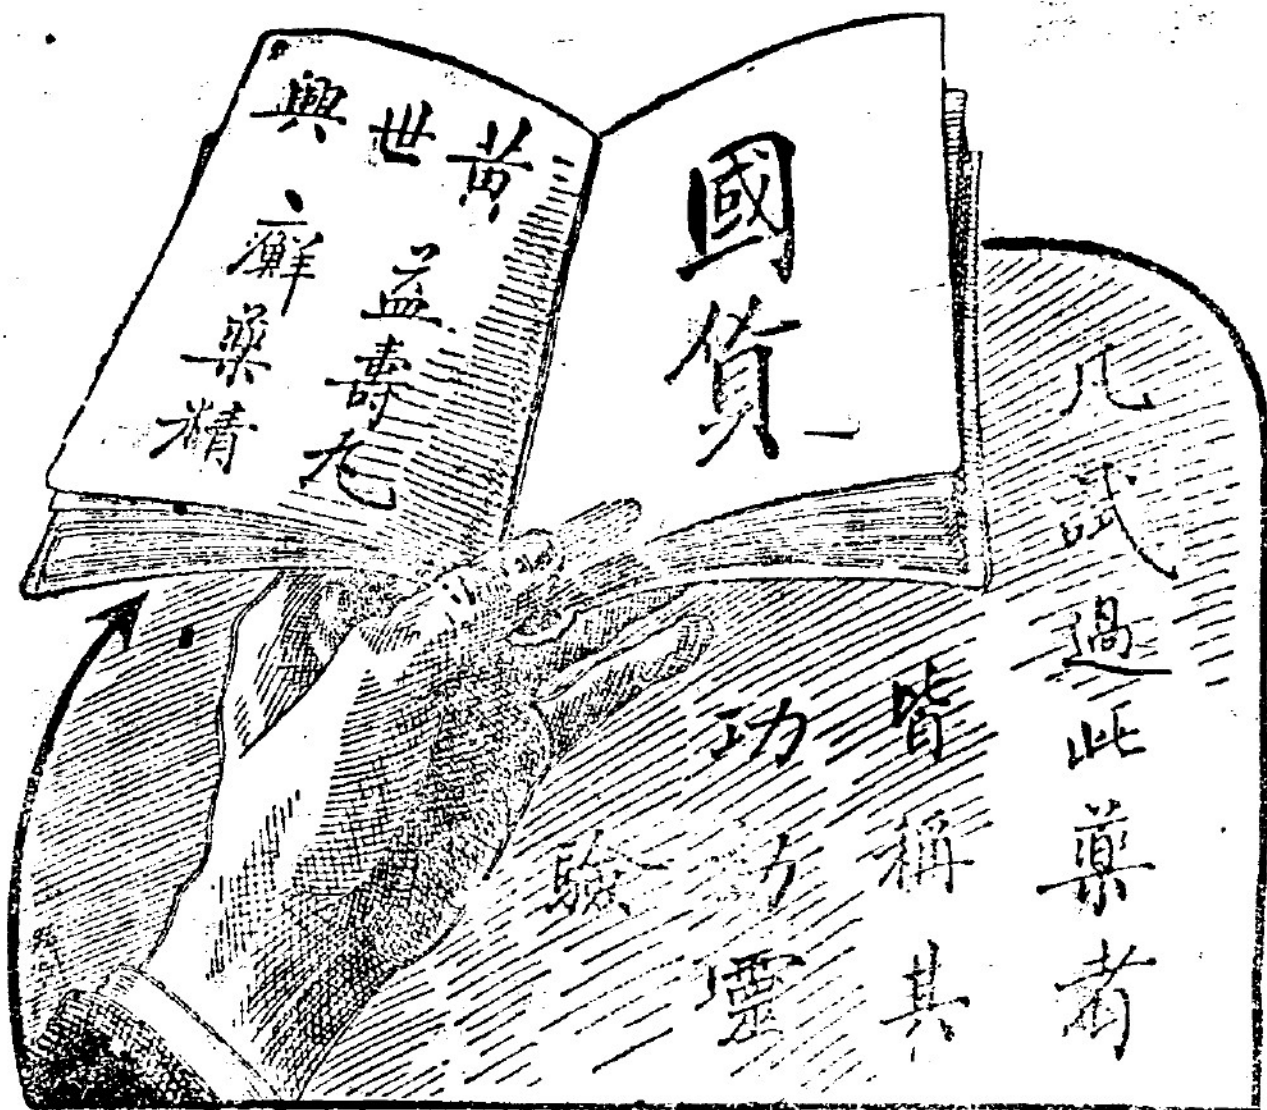 國貨
黃世興
益壽丸
癬藥精
凡試過此藥者
皆稱其
功力靈
驗